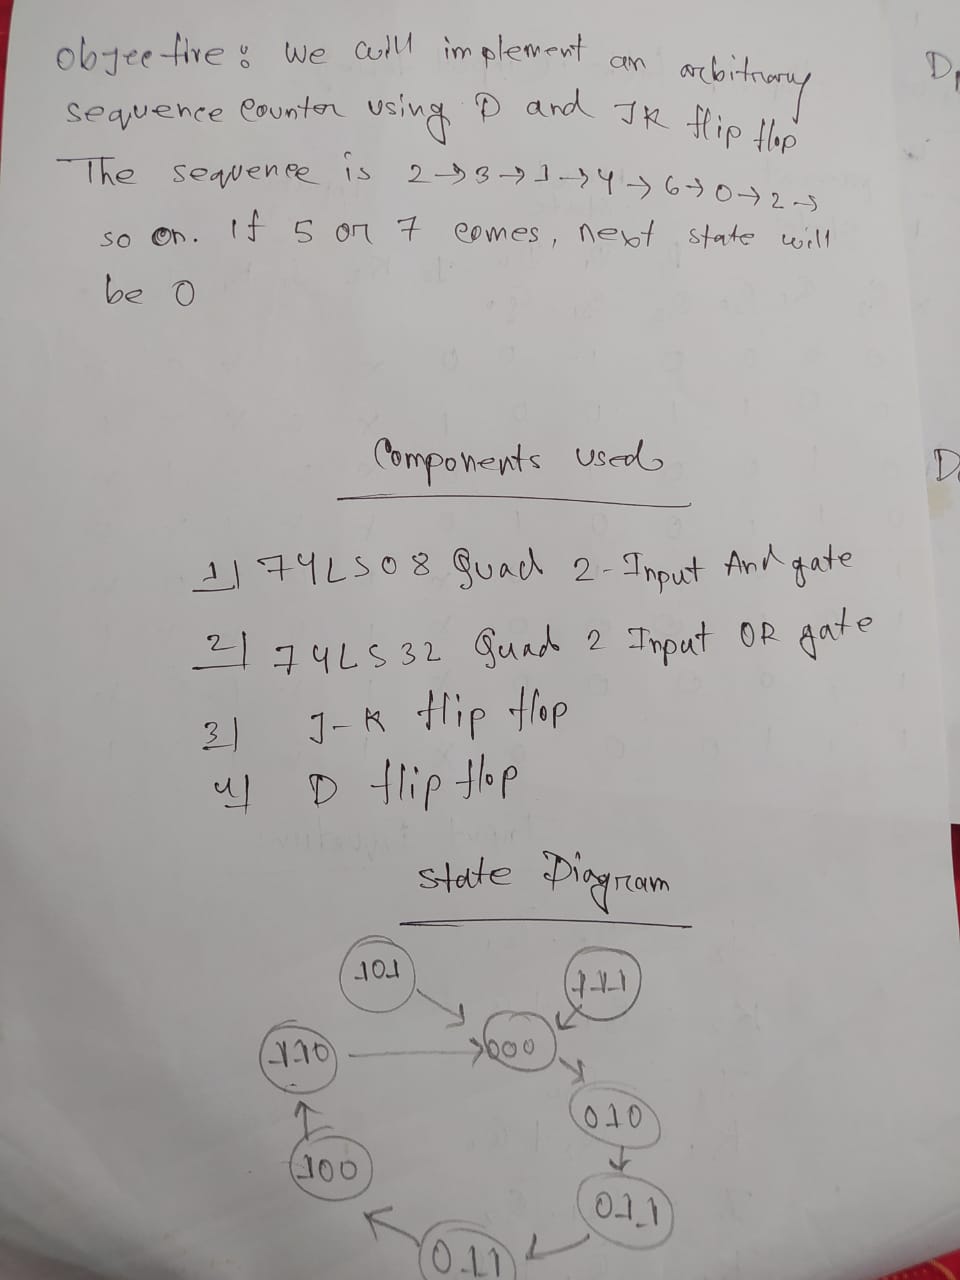 Objective: We will implement an arbitrary
sequence counter using D and JK flip flop
The sequence is 2→3→1→4→6→0→2→
so on. If 5 or 7 comes, next state will
be 0
D
Components used
D
1) 74LS08 Quad 2-Input And gate
2) 74LS32 Quad 2 Input OR gate
3) J-K flip flop
4) D flip flop
State Diagram
101
111
110
000
010
100
011
011